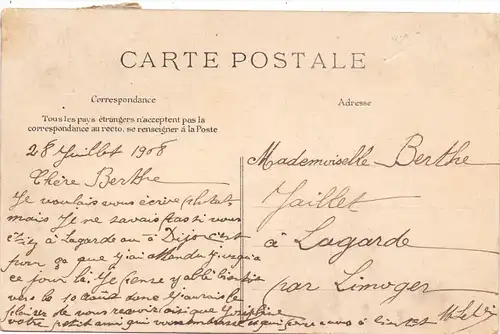 CARTE POSTALE
Correspondance
Adresse
Tous les pays étrangers n'acceptent pas la
correspondance au recto, se renseigner à la Poste
28 Juillet 1908
Chère Berthe
Je voulais vous écrire plutôt
mais Je ne savais pas si vous
à Lagarde ou à Dijon c'est
pour ça que j'ai attendu jusqu'a
ce jour là. Je pense y allé bientôt
vers le 10 août donc J'aurais le
plaisir de vous revoir ainsi que Joséphine
votre petit ami qui vous embrasse
Mademoiselle Berthe
Jaillet
à Lagarde
par Limoges